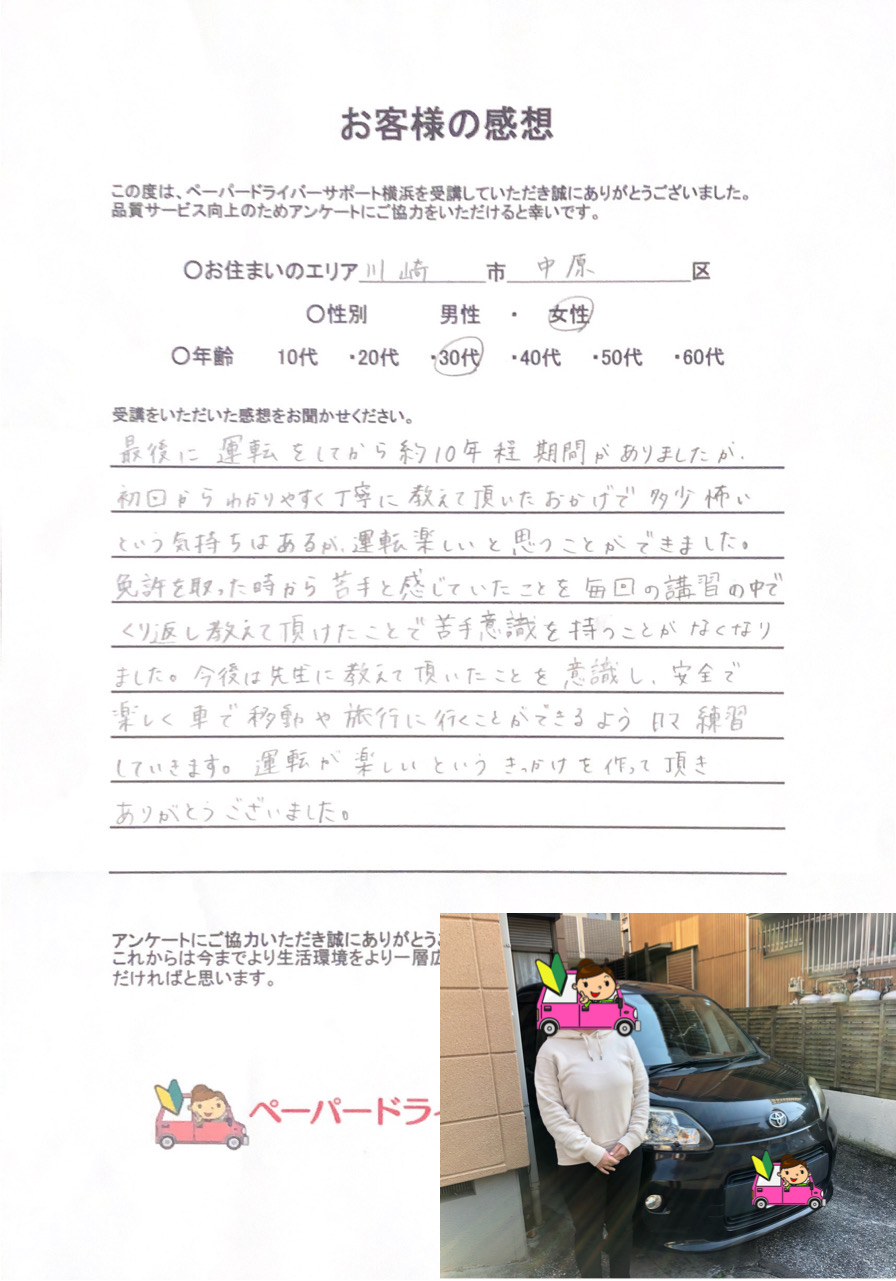 お客様の感想
この度は、ペーパードライバーサポート横浜を受講していただき誠にありがとうございました。
品質サービス向上のためアンケートにご協力をいただけると幸いです。
〇お住まいのエリア 川崎 市 中原 区
〇性別 男性 ・ 女性
〇年齢 10代 ・20代 ・30代 ・40代 ・50代 ・60代
受講をいただいた感想をお聞かせください。
最後に運転をしてから約10年程期間がありましたが、
初回からわかりやすく丁寧に教えて頂いたおかげで多少怖い
という気持ちはあるが、運転楽しいと思うことができました。
免許を取った時から苦手と感じていたことを毎回の講習の中で
くり返し教えて頂けたことで苦手意識を持つことがなくなり
ました。今後は先生に教えて頂いたことを意識し、安全で
楽しく車で移動や旅行に行くことができるよう日々練習
していきます。運転が楽しいというきっかけを作って頂き
ありがとうございました。
アンケートにご協力いただき誠にありがとうご
これからは今までより生活環境をより一層広
だければと思います。
ペーパードライ